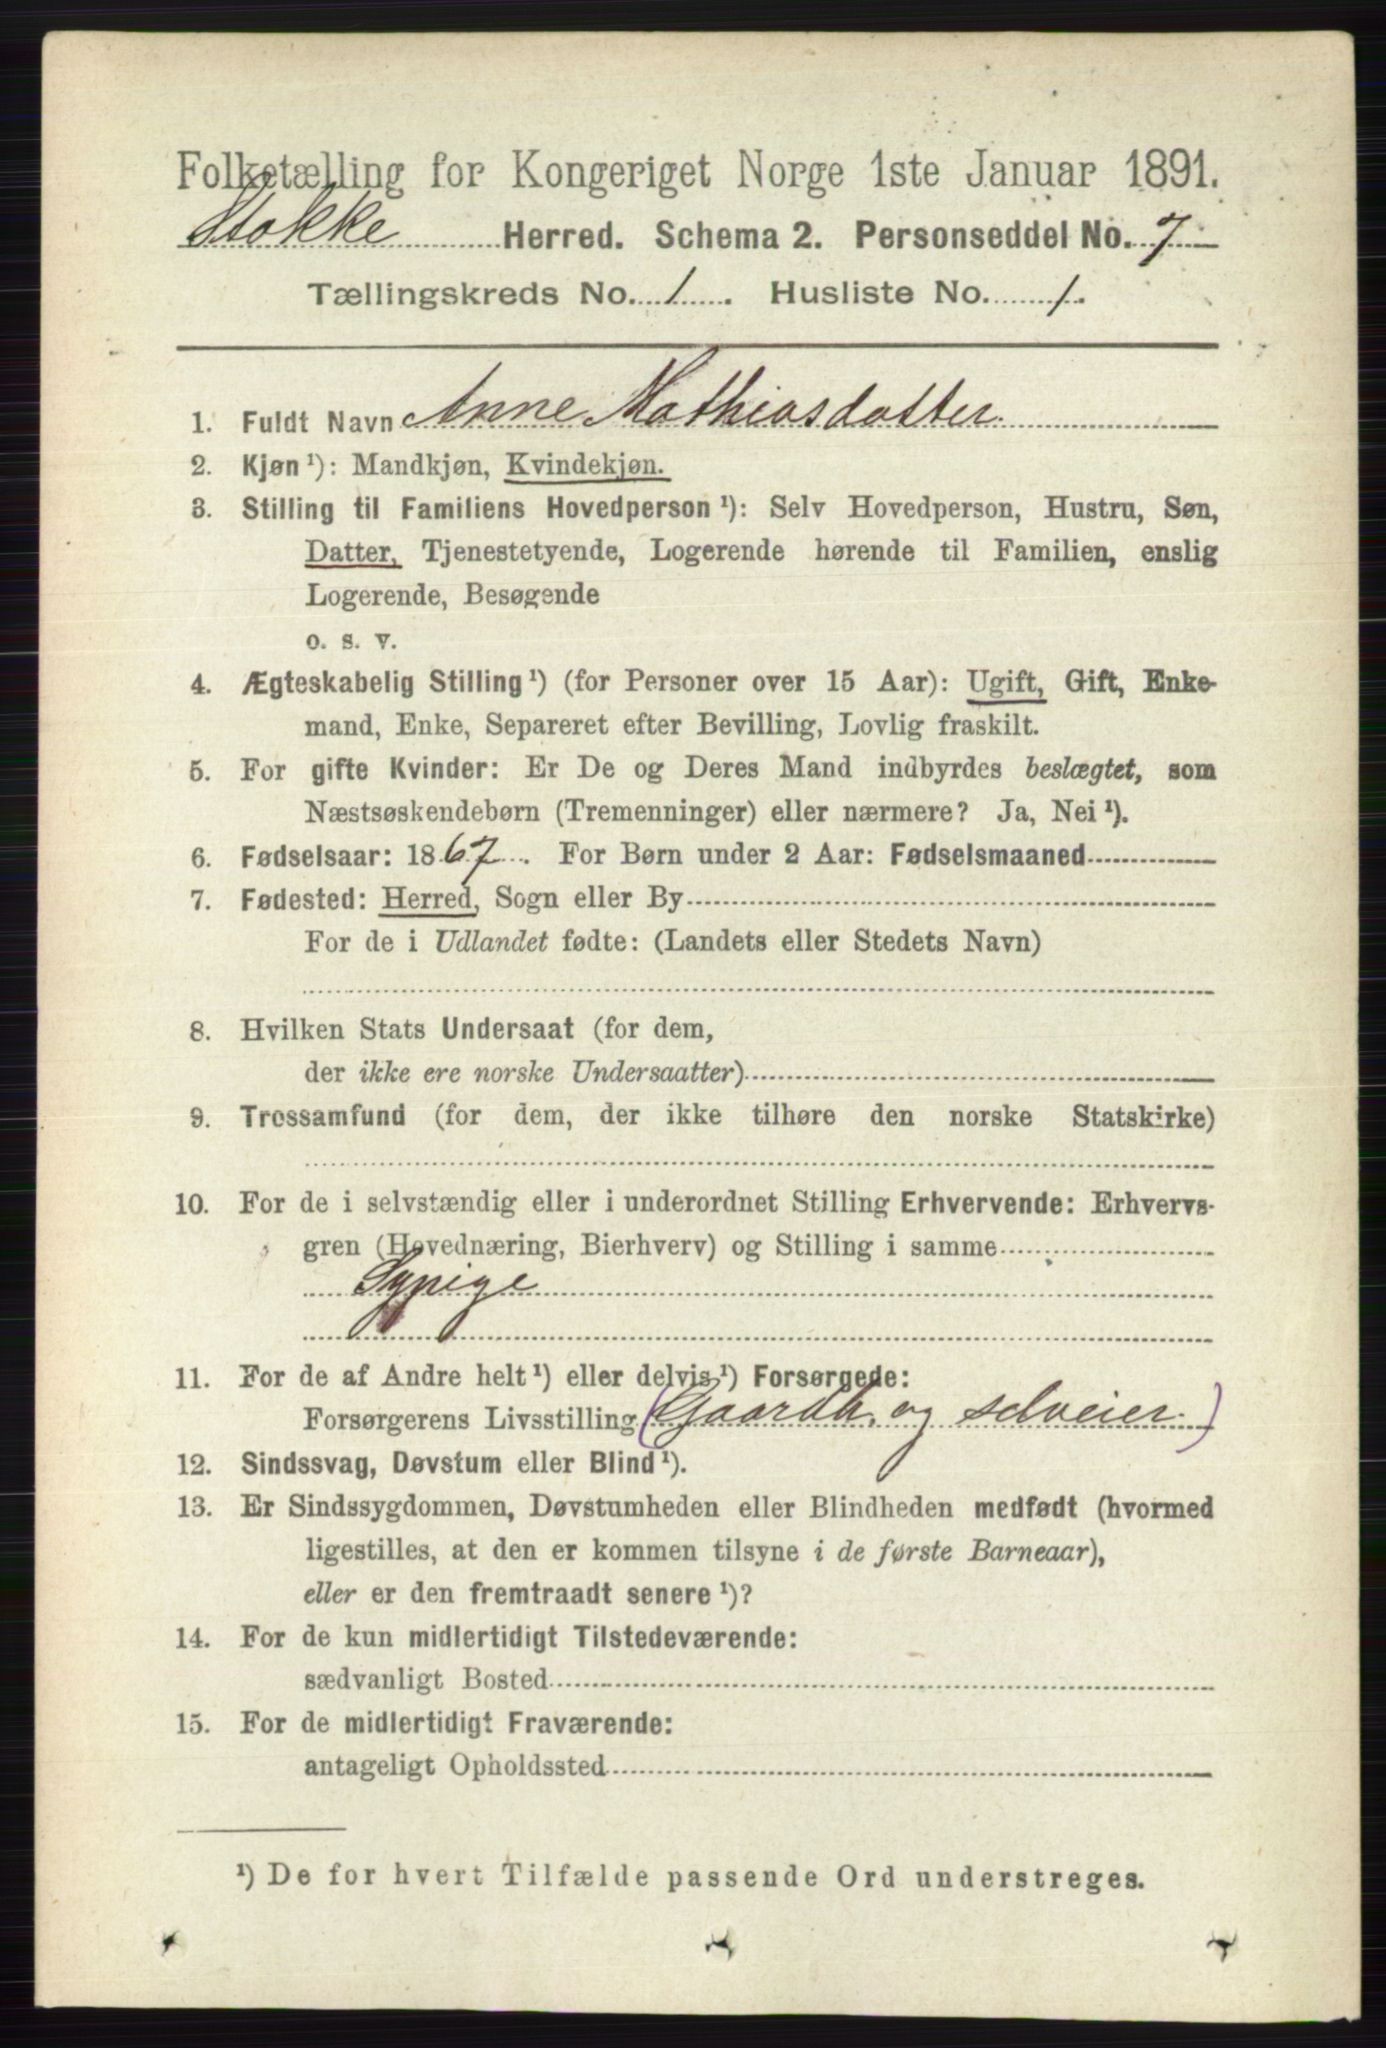 Folketælling for Kongeriget Norge 1ste Januar 1891.
Stokke Herred. Schema 2. Personseddel No. 7
Tællingskreds No. 1. Husliste No. 1.
1. Fuldt Navn Anne Mathiasdatter
2. Kjøn ¹): Mandkjøn, Kvindekjøn.
3. Stilling til Familiens Hovedperson ¹): Selv Hovedperson, Hustru, Søn,
Datter, Tjenestetyende, Logerende hørende til Familien, enslig
Logerende, Besøgende
o. s. v.
4. Ægteskabelig Stilling ¹) (for Personer over 15 Aar): Ugift, Gift, Enke-
mand, Enke, Separeret efter Bevilling, Lovlig fraskilt.
5. For gifte Kvinder: Er De og Deres Mand indbyrdes beslægtet, som
Næstsøskendebørn (Tremenninger) eller nærmere? Ja, Nei ¹).
6. Fødselsaar: 1867. For Børn under 2 Aar: Fødselsmaaned
7. Fødested: Herred, Sogn eller By
For de i Udlandet fødte: (Landets eller Stedets Navn)
8. Hvilken Stats Undersaat (for dem,
der ikke ere norske Undersaatter)
9. Trossamfund (for dem, der ikke tilhøre den norske Statskirke)
10. For de i selvstændig eller i underordnet Stilling Erhvervende: Erhvervs-
gren (Hovednæring, Bierhverv) og Stilling i samme
Sypige
11. For de af Andre helt ¹) eller delvis ¹) Forsørgede:
Forsørgerens Livsstilling (Gaardb. og selveier.)
12. Sindssvag, Døvstum eller Blind ¹).
13. Er Sindssygdommen, Døvstumheden eller Blindheden medfødt (hvormed
ligestilles, at den er kommen tilsyne i de første Barneaar),
eller er den fremtraadt senere ¹)?
14. For de kun midlertidigt Tilstedeværende:
sædvanligt Bosted
15. For de midlertidigt Fraværende:
antageligt Opholdssted
¹) De for hvert Tilfælde passende Ord understreges.